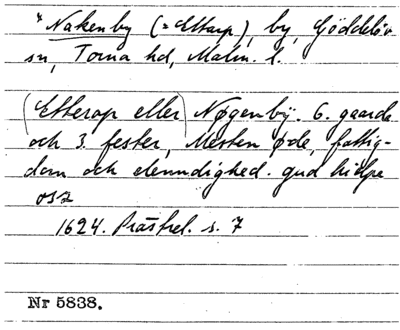 "Nakenby (= Ettarp), by, Göddelöv
sn, Torna hd, Malm. l.
(Etterop eller) Nøgenbÿ. 6. gaarde
och 3. fester, Mesten øde, fattig-
dom och elenndighed. gud hielpe
osz
1624. Prästrel. s. 7
Nr 5838.